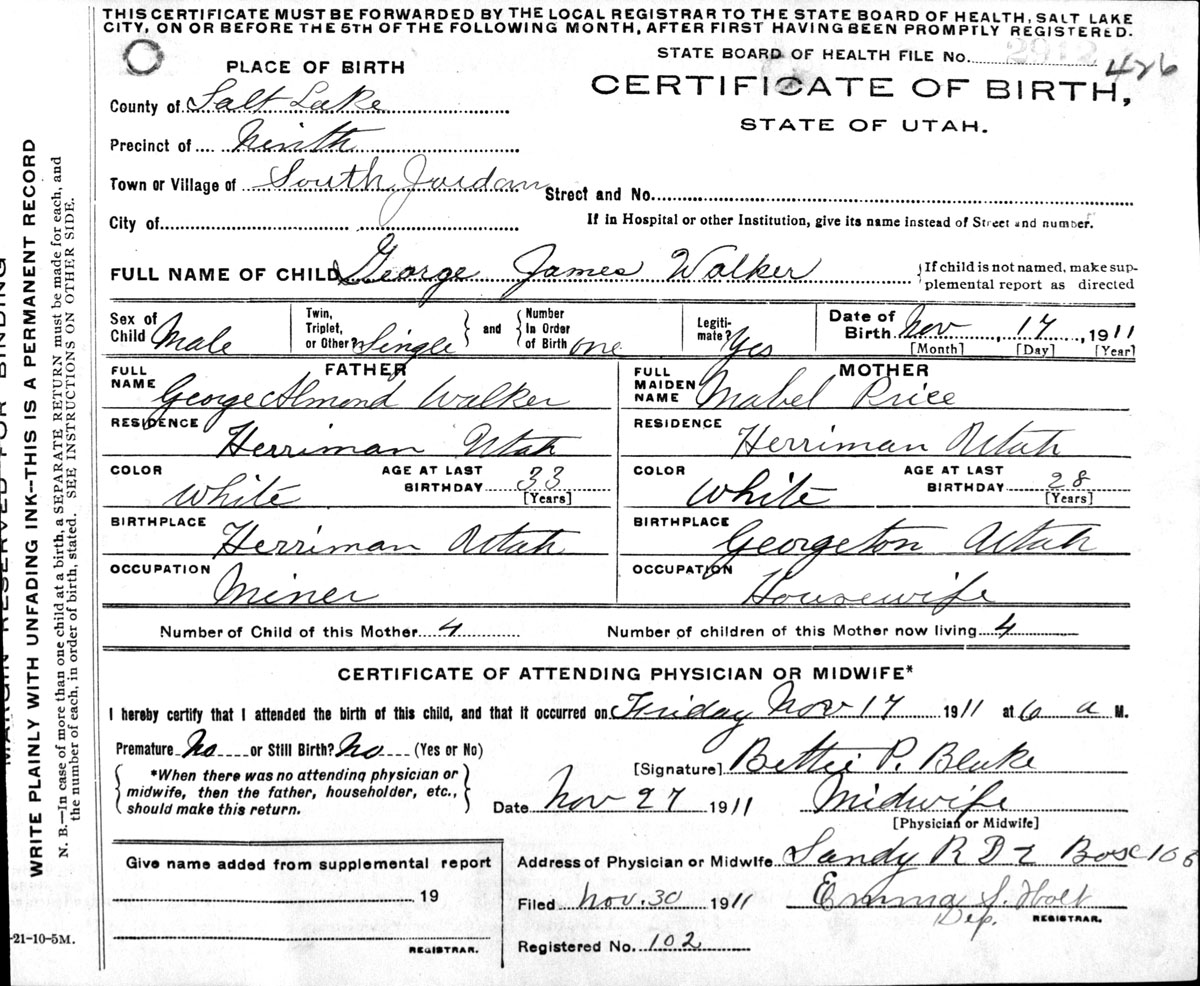 THIS CERTIFICATE MUST BE FORWARDED BY THE LOCAL REGISTRAR TO THE STATE BOARD OF HEALTH, SALT LAKE
CITY, ON OR BEFORE THE 5TH OF THE FOLLOWING MONTH, AFTER FIRST HAVING BEEN PROMPTLY REGISTERED.
STATE BOARD OF HEALTH FILE No. 2912 426
PLACE OF BIRTH
CERTIFICATE OF BIRTH,
STATE OF UTAH.
County of Salt Lake
Precinct of Ninth
Town or Village of South Jordan Street and No.
City of If in Hospital or other Institution, give its name instead of Street and number.
FULL NAME OF CHILD George James Walker
If child is not named, make sup-
plemental report as directed
Sex of Child Male
Twin, Triplet, or Other? Single
and
Number In Order of Birth one
Legiti-mate? Yes
Date of Birth Nov, 17, 1911
[Month] [Day] [Year]
FATHER
FULL NAME George Almond Walker
MOTHER
FULL MAIDEN NAME Mabel Price
RESIDENCE Herriman Utah
RESIDENCE Herriman Utah
COLOR White AGE AT LAST BIRTHDAY 33 [Years]
COLOR White AGE AT LAST BIRTHDAY 28 [Years]
BIRTHPLACE Herriman Utah
BIRTHPLACE Georgeton Utah
OCCUPATION Miner
OCCUPATION Housewife
Number of Child of this Mother 4 Number of children of this Mother now living 4
CERTIFICATE OF ATTENDING PHYSICIAN OR MIDWIFE*
I hereby certify that I attended the birth of this child, and that it occurred on Friday Nov 17 1911 at 6 a M.
Premature No or Still Birth? No (Yes or No)
*When there was no attending physician or
midwife, then the father, householder, etc.,
should make this return.
[Signature] Bettie P. Blake
Date Nov 27 1911 Midwife
[Physician or Midwife]
Give name added from supplemental report
19
REGISTRAR.
Address of Physician or Midwife Sandy R D Box
Filed Nov. 30 1911 Emma S. Holt
Dep. REGISTRAR.
Registered No. 102
MARGIN RESERVED FOR BINDING
WRITE PLAINLY WITH UNFADING INK--THIS IS A PERMANENT RECORD
N. B.—In case of more than one child at a birth, a SEPARATE RETURN must be made for each, and
the number of each, in order of birth, stated. SEE INSTRUCTIONS ON OTHER SIDE.
-21-10-5M.